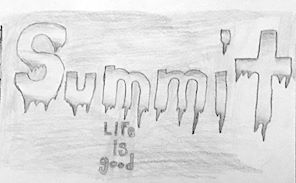 Summit
Life
is
good